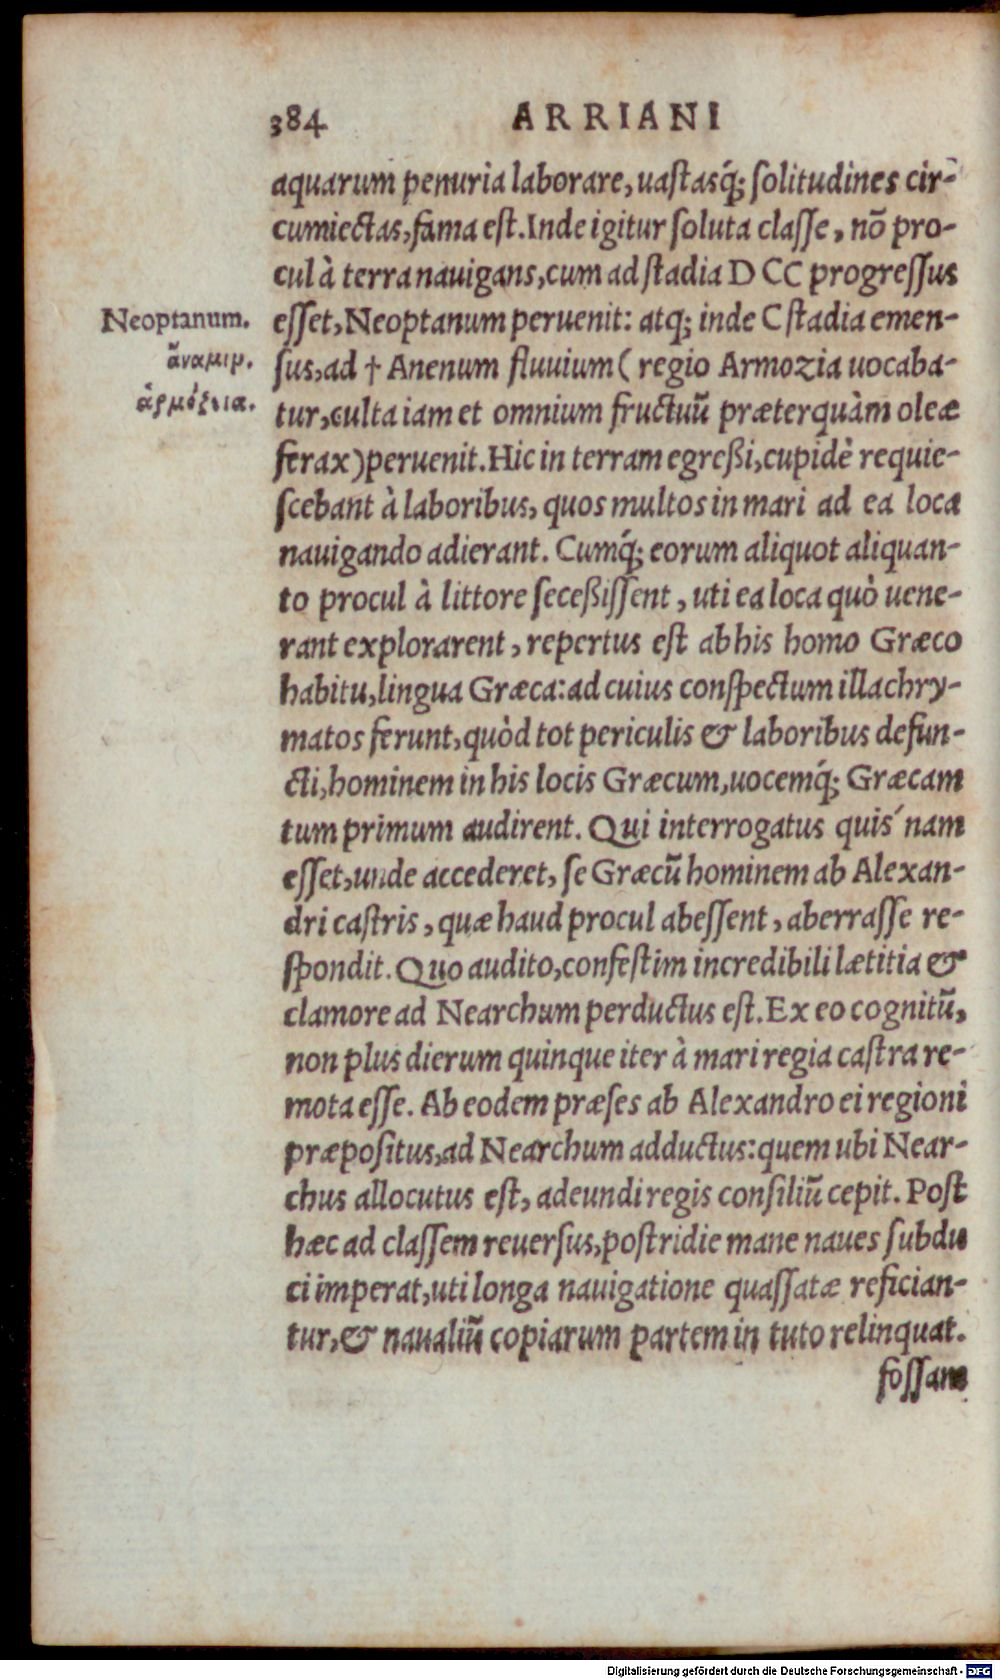 384 ARRIANI
aquarum penuria laborare, uastasq́; solitudines cir-
cumiectas, fama est. Inde igitur soluta classe, nõ pro-
cul à terra nauigans, cum ad stadia D CC progressus
Neoptanum. esset, Neoptanum peruenit: atq; inde C stadia emen-
ἄναμιμ. sus, ad † Anenum fluuium ( regio Armozia uocaba-
ἁρμόζεια. tur, culta iam et omnium fructuũ præterquàm oleæ
ferax) peruenit. Hic in terram egreßi, cupidè requie-
scebant à laboribus, quos multos in mari ad ea loca
nauigando adierant. Cumq́; eorum aliquot aliquan-
to procul à littore seceßissent, uti ea loca quò uene-
rant explorarent, repertus est ab his homo Græco
habitu, lingua Græca: ad cuius conspectum illachry-
matos ferunt, quòd tot periculis & laboribus defun-
cti, hominem in his locis Græcum, uocemq́; Græcam
tum primum audirent. Qui interrogatus quis´nam
esset, unde accederet, se Græcũ hominem ab Alexan-
dri castris, quæ haud procul abessent, aberrasse re-
spondit. Quo audito, confestim incredibili lætitia &
clamore ad Nearchum perductus est. Ex eo cognitũ,
non plus dierum quinque iter à mari regia castra re-
mota esse. Ab eodem præses ab Alexandro ei regioni
præpositus, ad Nearchum adductus: quem ubi Near-
chus allocutus est, adeundi regis consiliũ cepit. Post
hæc ad classem reuersus, postridie mane naues subdu
ci imperat, uti longa nauigatione quassatæ refician-
tur, & naualiũ copiarum partem in tuto relinquat.
fossam
Digitalisierung gefördert durch die Deutsche Forschungsgemeinschaft - DFG